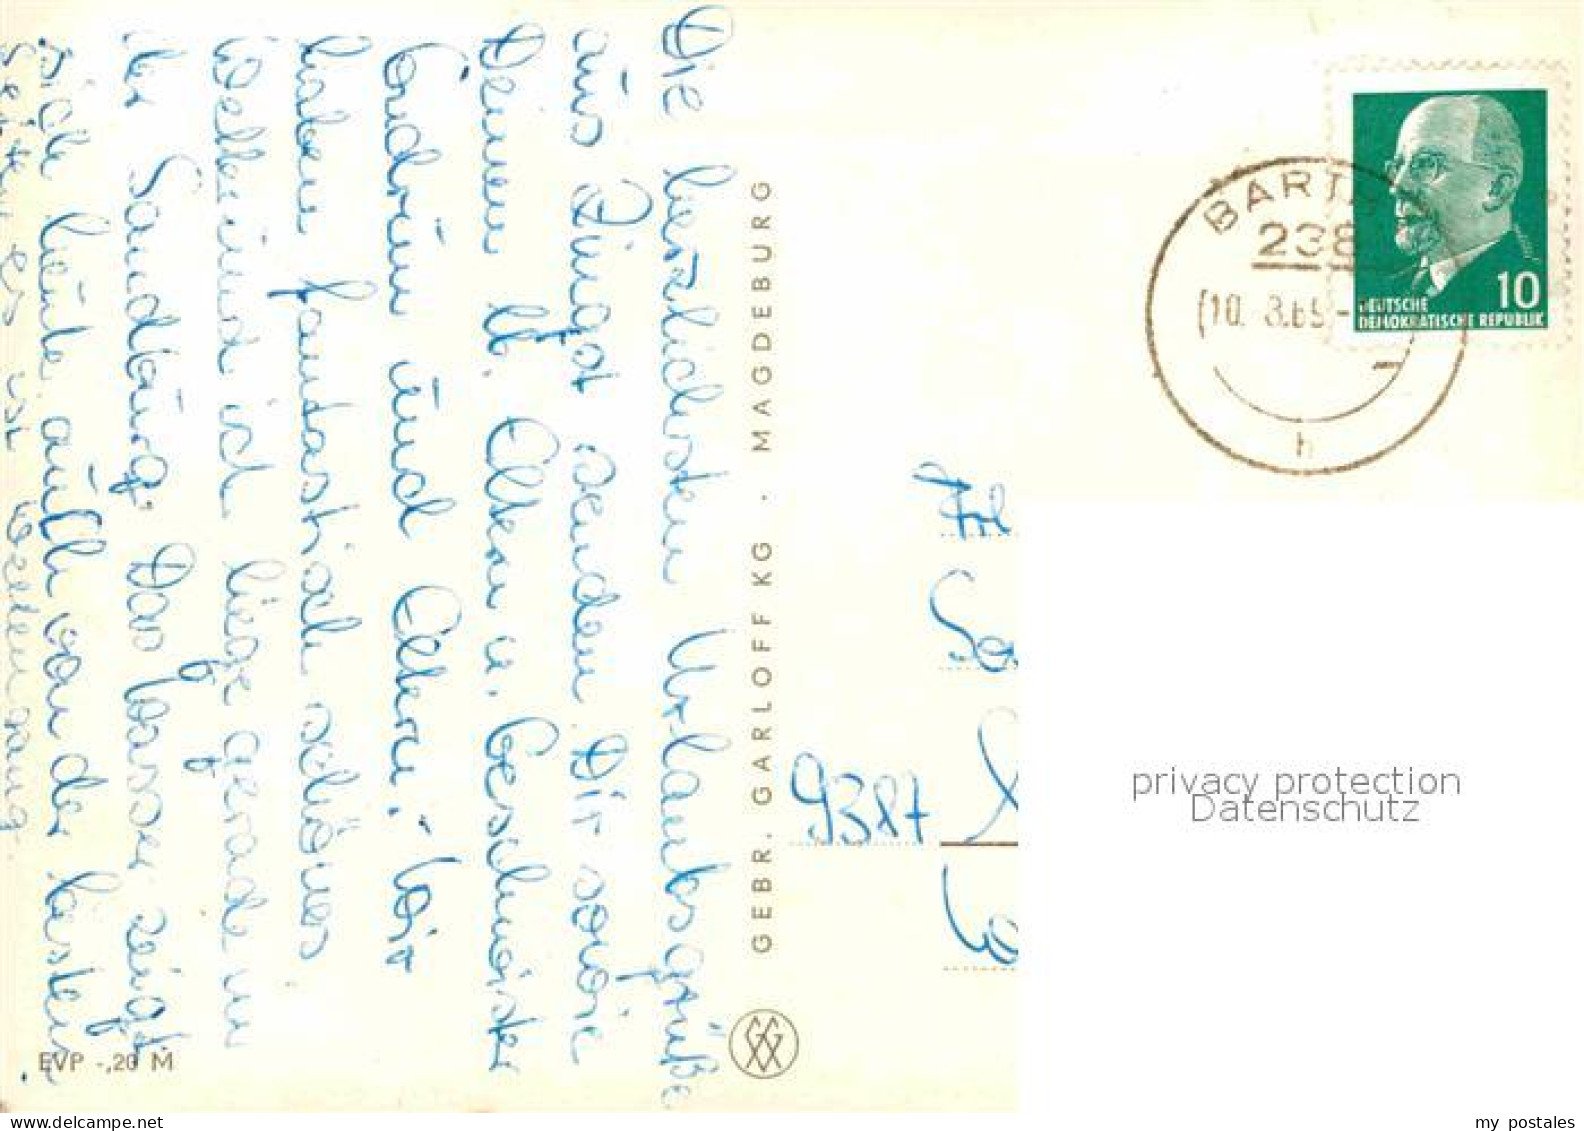 Die herzlichsten Urlaubsgrüße
aus Zingst senden Dir sowie
Deinen lb. Eltern u. Geschwister
Gudrun und Eltern. Wir
haben fantastisch schönes
Wetter und ich liege gerade in
der Sandburg. Das Wasser zeigt
sich heute auch von der besten
Seite, es ist
GEBR. GARLOFF KG · MAGDEBURG
EVP -,20 M
BARTH
238
10. 8.65
h
10
DEUTSCHE
DEMOKRATISCHE REPUBLIK
9387
privacy protection
Datenschutz
my postales